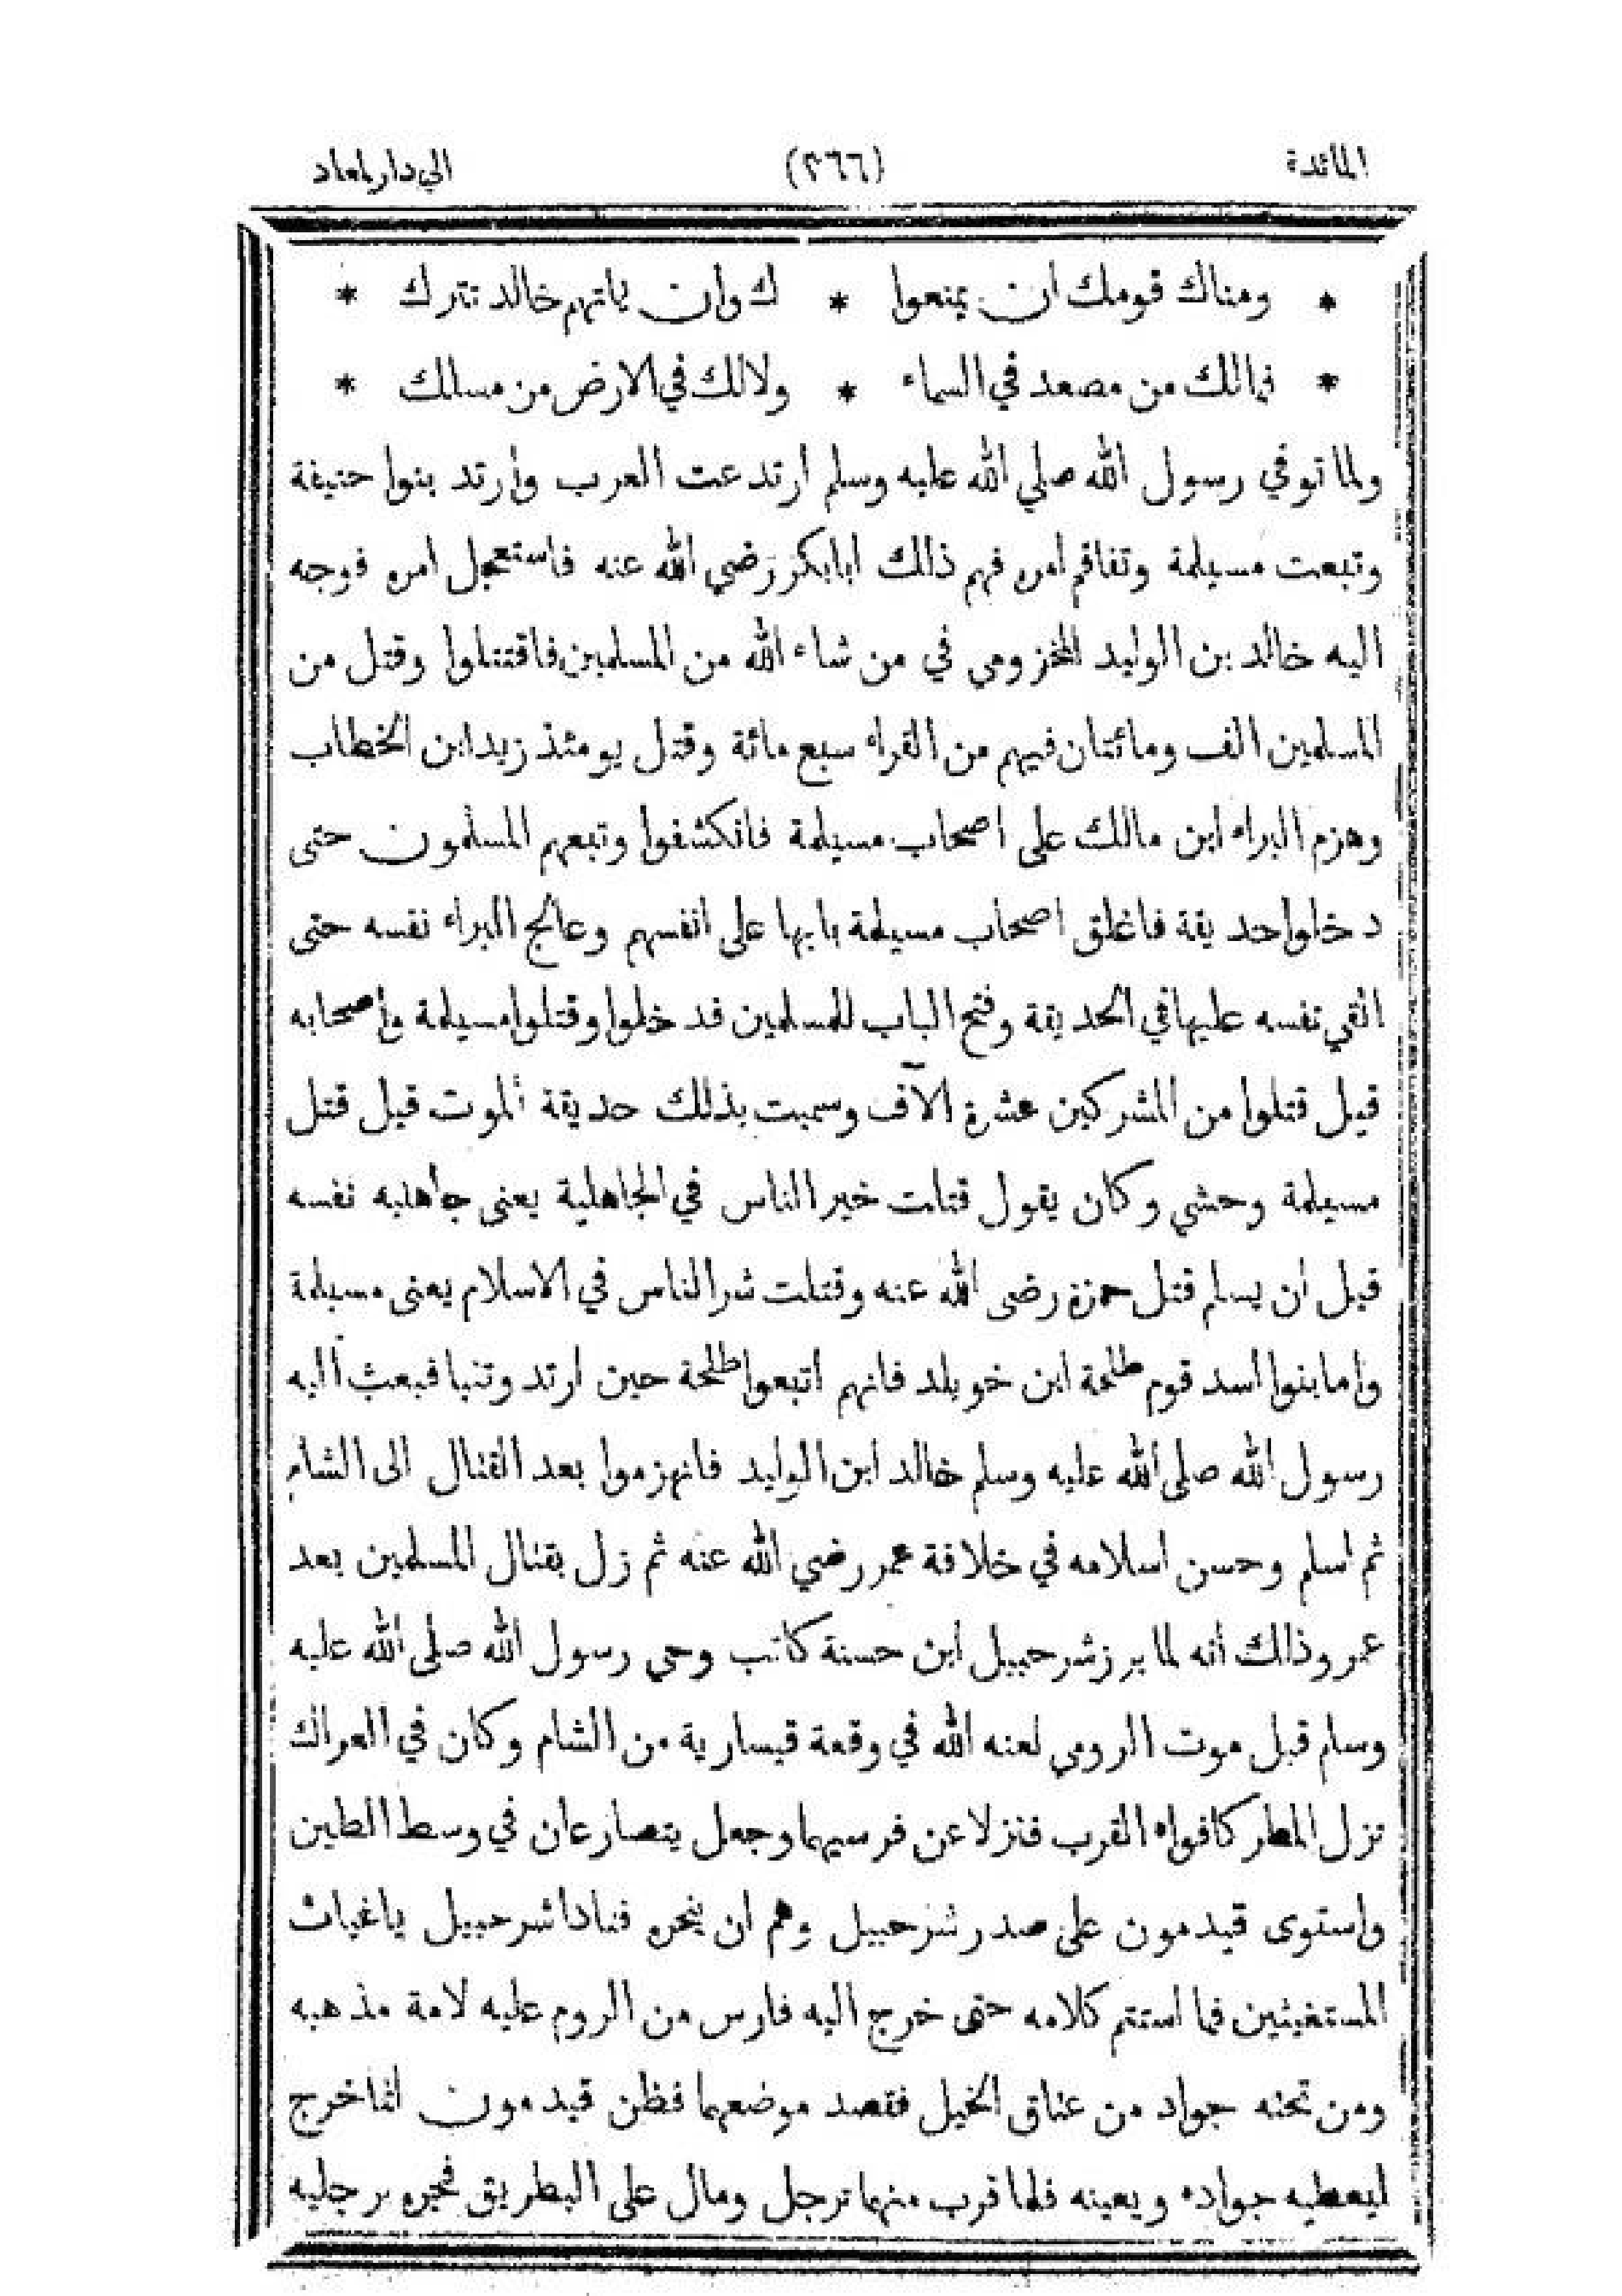 المائدة (٣٦٦) الي دار لمعاد
* ومناك قومك ان يمنعوا * ك وان ياتهم خالد تترك *
* فمالك من مصعد في السماء * ولالك في الارض من مسلك *
ولما توفي رسول الله صلي الله عليه وسلم ارتدعت العرب وارتد بنوا حنيفة
وتبعت مسيلمة وتفاقم امره فهم ذلك ابابكر رضي الله عنه فاستعجل امره فوجه
اليه خالد بن الوليد المخزومي في من شاء الله من المسلمين فاقتتلوا وقتل من
المسلمين الف ومائتان فيهم من القراء سبع مائة وقتل يومئذ زيد ابن الخطاب
وهزم البراء ابن مالك على اصحاب مسيلمة فانكشفوا وتبعهم المسلمون حتى
دخلوا حديقة فاغلق اصحاب مسيلمة بابها على انفسهم وعالج البراء نفسه حتى
القي نفسه عليها في الحديقة وفتح الباب للمسلمين فدخلوا وقتلوا مسيلمة واصحابه
قيل قتلوا من المشركين عشرة الآف وسميت بذلك حديقة الموت قيل قتل
مسيلمة وحشي وكان يقول قتلت خير الناس في الجاهلية يعنى جاهليه نفسه
قبل ان يسلم قتل حمزة رضى الله عنه وقتلت شر الناس في الاسلام يعنى مسيلمة
واما بنوا اسد قوم طلحة ابن خويلد فانهم اتبعوا طلحة حين ارتد وتنبا فبعث اليه
رسول الله صلى الله عليه وسلم خالد ابن الوليد فانهزموا بعد القتال الى الشام
ثم اسلم وحسن اسلامه في خلافة عمر رضي الله عنه ثم زل بقتال المسلمين بعد
عمر وذلك انه لما برز شرحبيل ابن حسنة كاتب وحي رسول الله صلى الله عليه
وسلم قبل موت الرومي لعنه الله في وقعة قيسارية من الشام وكان في العراك
نزل المطر كافواه القرب فنزلا عن فرسيهما وجعل يتصارعان في وسط الطين
واستوى قيدمون على صدر شرحبيل وهم ان ينحره فنادا شرحبيل ياغياث
المستغيثين فما استتم كلامه حتى خرج اليه فارس من الروم عليه لامة مذهبه
ومن تحته جواد من عتاق الخيل فقصد موضعهما فظن قيدمون انما خرج
ليعطيه جواده ويعينه فلما قرب منهما ترجل ومال على البطريق فجره برجليه